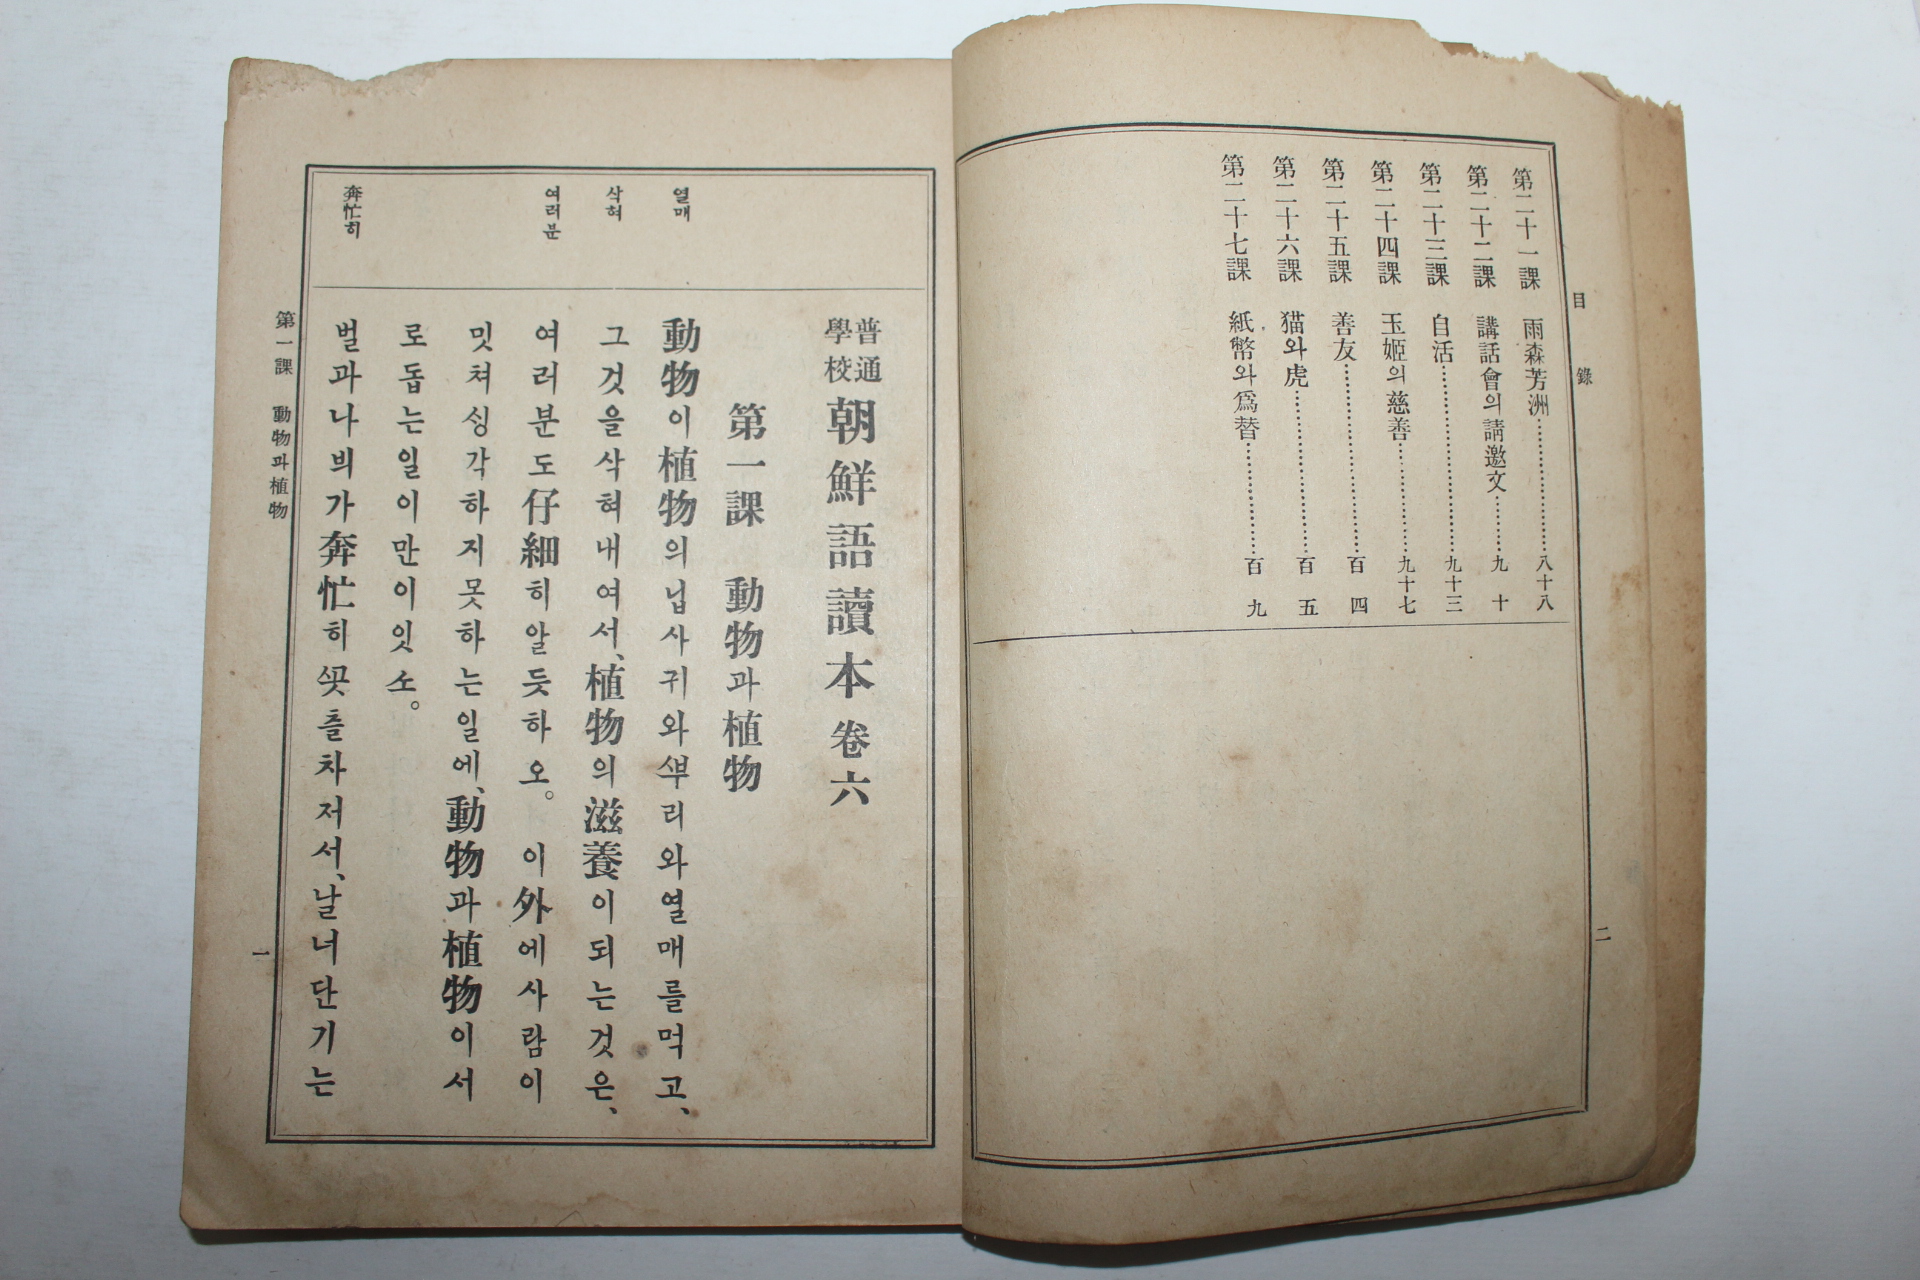 目錄
第二十一課 雨森芳洲……………八十八
第二十二課 講話會의請邀文………九十
第二十三課 自活……………九十三
第二十四課 玉姬의慈善…………九十七
第二十五課 善友……………百四
第二十六課 猫와虎……………百五
第二十七課 紙幣와爲替…………百九
二
普通學校 朝鮮語讀本 卷六
第一課 動物과植物
열매
삭혀
여러분
奔忙히
動物이植物의닙사귀와ᄲᅮ리와열매를먹고、
그것을삭혀내여서、植物의滋養이되는것은、
여러분도仔細히알듯하오。 이外에사람이
밋쳐ᄉᆡᆼ각하지못하는일에、動物과植物이서
로돕는일이만이잇소。
벌과나븨가奔忙히ᄭᅩᆺ츨차저서、날너단기는
第一課 動物과植物
一